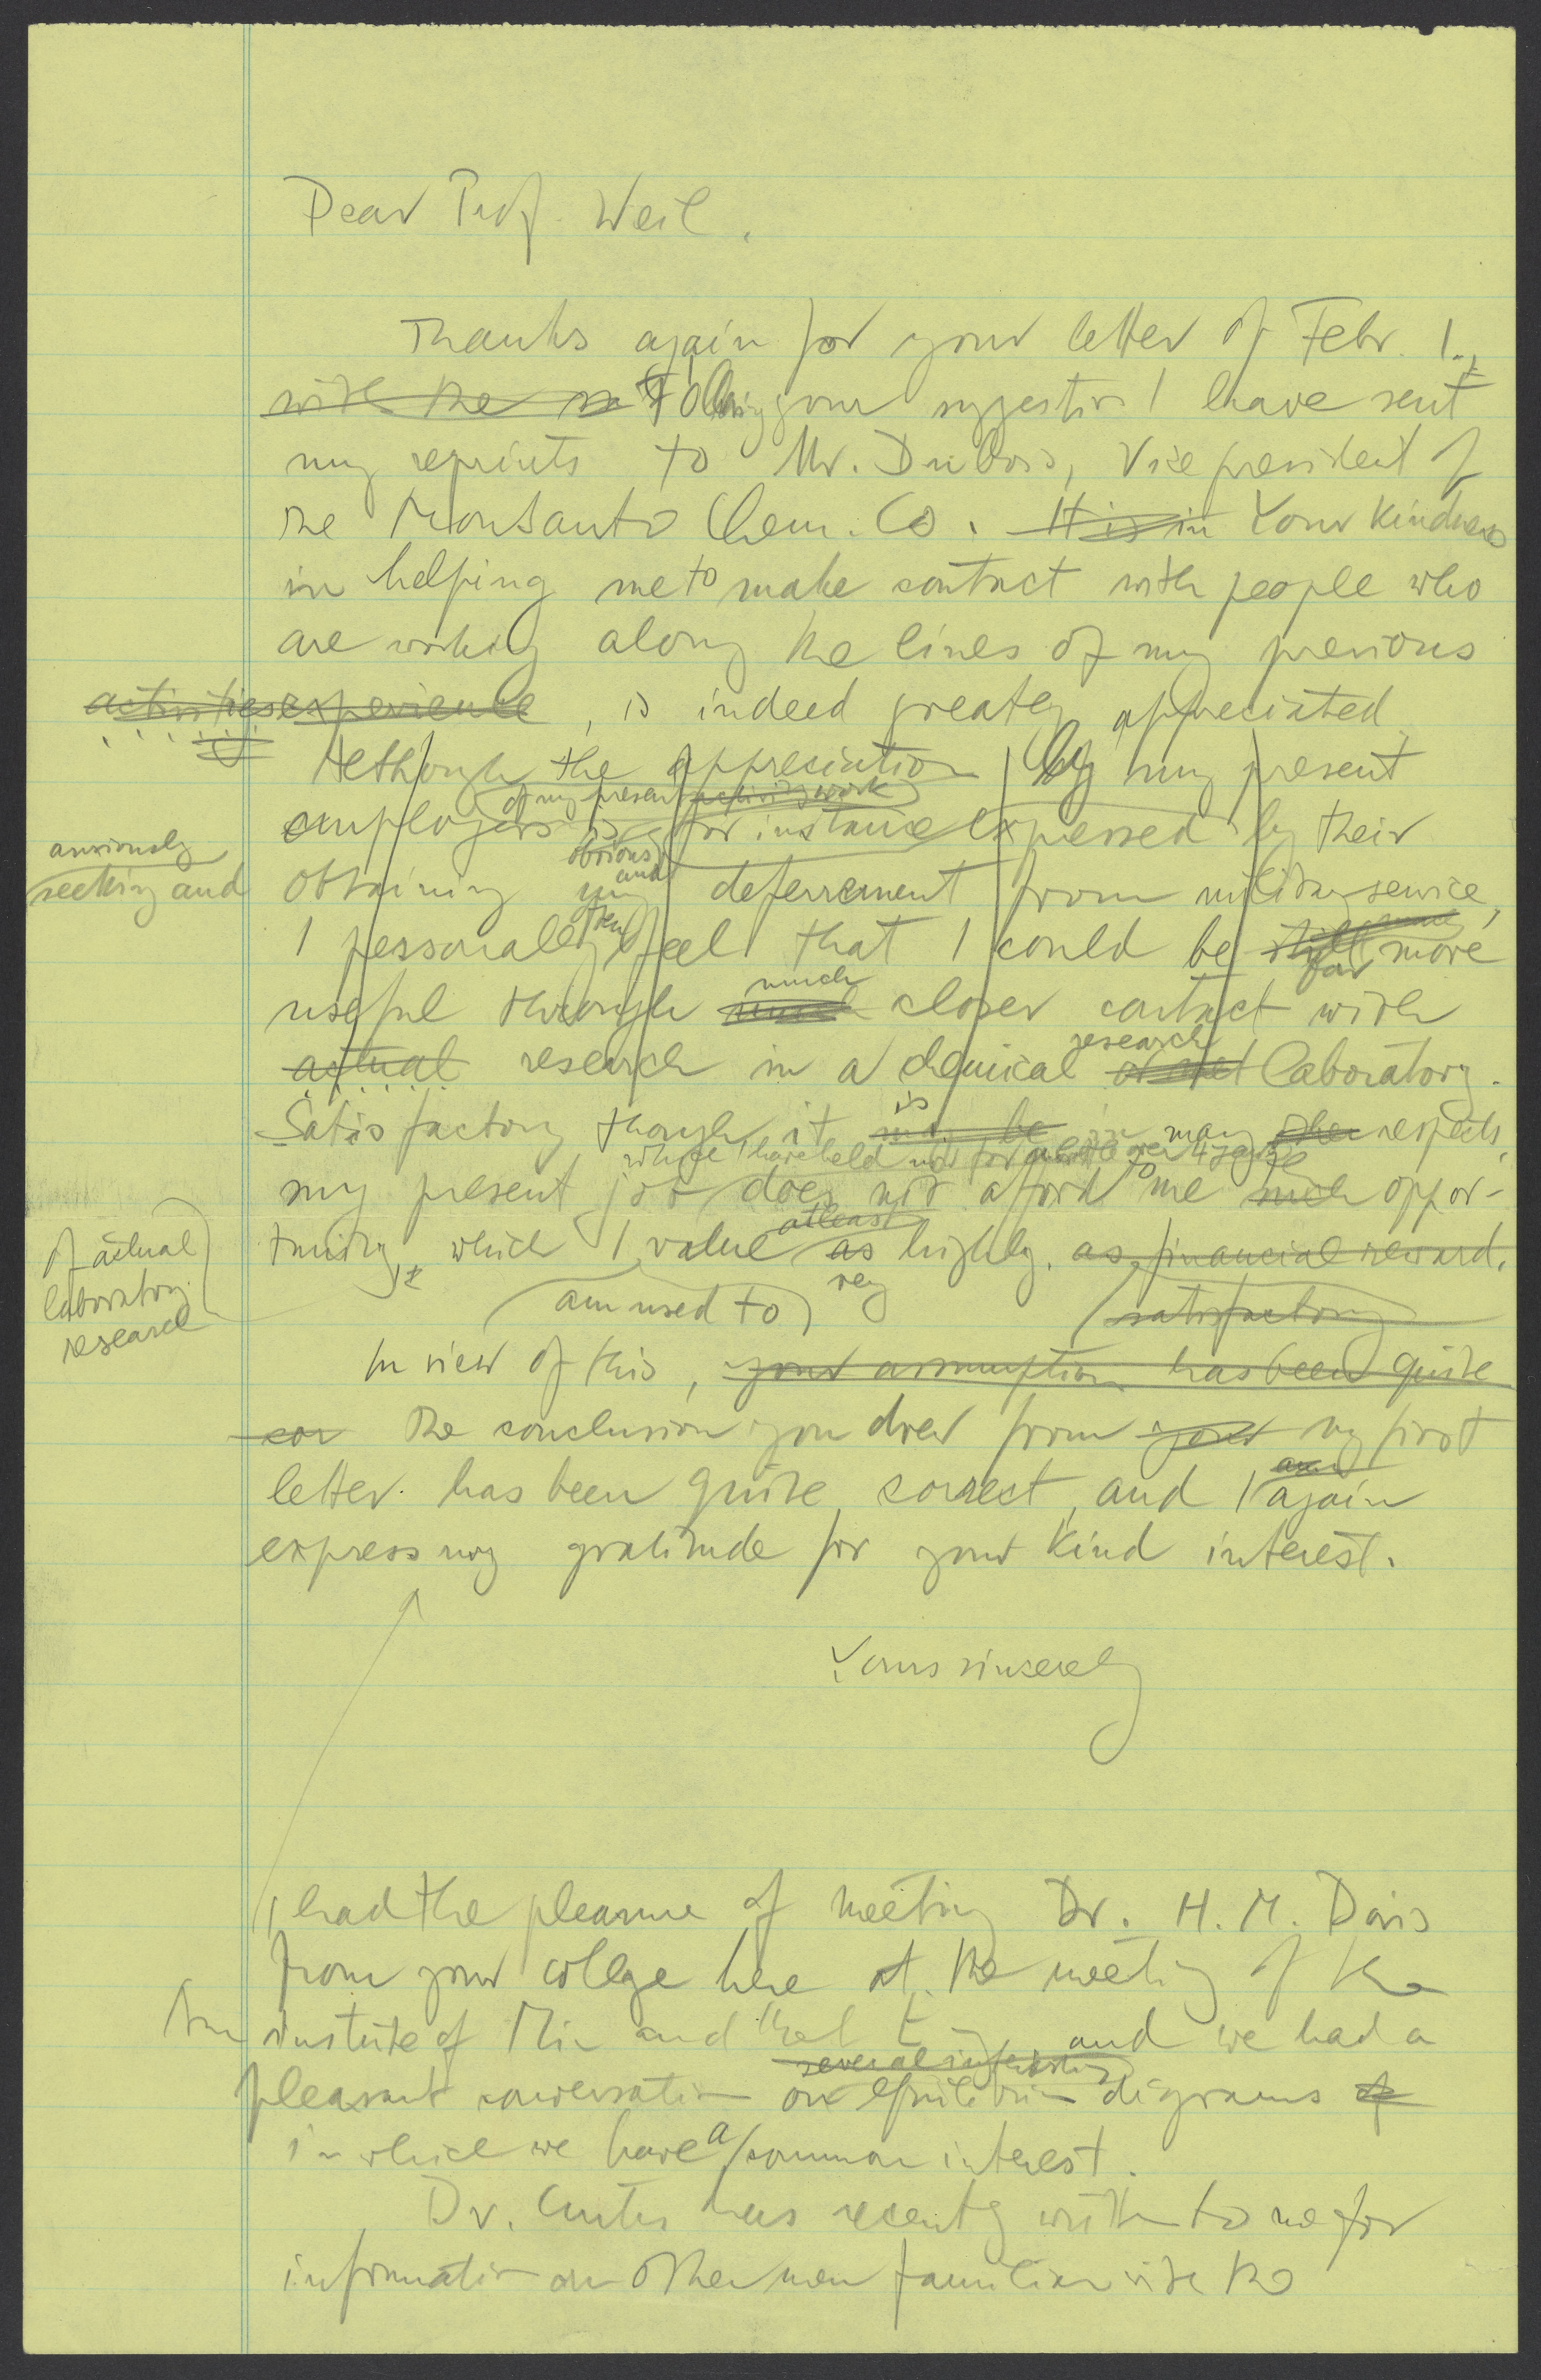 Dear Prof. Weil,
Thanks again for your letter of Febr. 1.,
with the Following your suggestion I have sent
my reprints to Mr. DuBois, Vice president of
the Monsanto Chem. Co. It is in Your kindness
in helping me to make contact with people who
are working along the lines of my previous
activities experience, is indeed greatly appreciated
Although the appreciation by my present
of my present activity work
employers is for instance expressed by their
anxiously
obvious
and
seeking and
obtaining my deferrement from military service,
I personally feel that I could be still more
far
much
useful through closer contact with
research
actual research in a chemical laboratory.
is
Satisfactory though it may be in many other respects,
which I have held now for over 4 years
my present job does not afford to me such oppor-
of actual
laboratory
research
at least
tunity, which I value as highly, as financial reward.
am used to
very
satisfactory
In view of this, your assumption has been quite
cor the conclusion you drew from your my first
am
letter has been quite correct, and I again
express my gratitude for your kind interest.
Yours sincerely
I had the pleasure of meeting Dr. H. M. Davis
from your college here at the meeting of the
Am institute of Min and Met and we had a
several interesting
pleasant conversation on equilibrium diagrams of
in which we have a common interest.
Dr. has recently written to me for
information on other men familiar with the